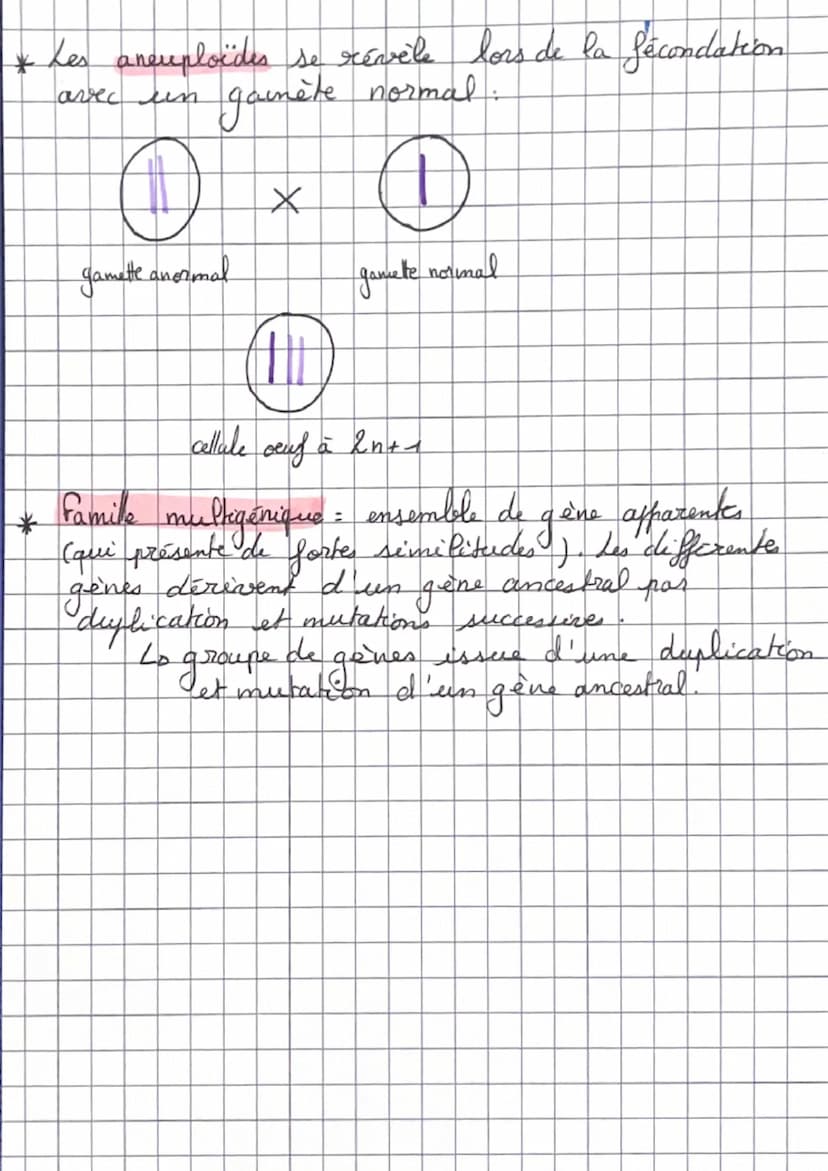 * Les aneuploïdes se révèle lors de la fécondation
avec un gamète normal :
X
gamette anormal
gamette normal
cellule oeuf à 2n+1
* Famille multigénique = ensemble de gène apparentés
(qui présente de fortes similitudes). Les différentes
gènes dérivent d'un gène ancestral par
duplication et mutations successives.
↳ groupe de gènes issue d'une duplication
et mutation d'un gène ancestral.